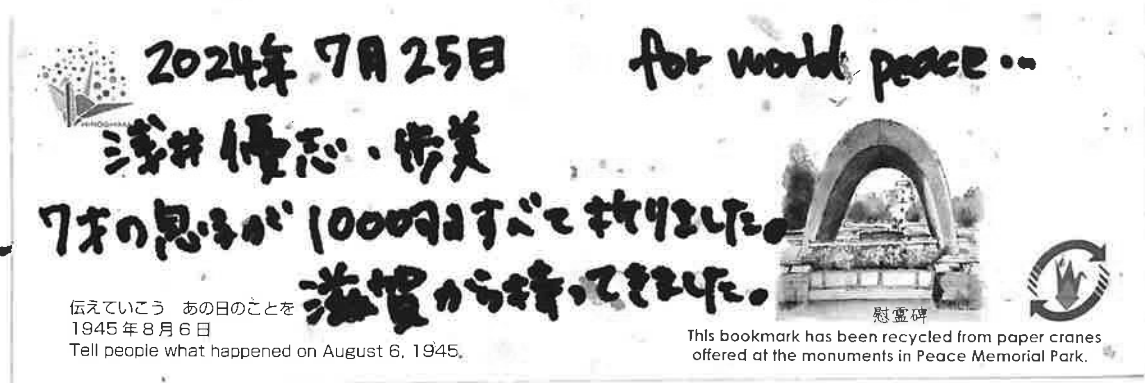 2024年 7月25日
for world peace...
HIROSHIMA
浅井 優志・歩美
7才の息子が 1000羽すべて折りました。
滋賀から持ってきました。
伝えていこう あの日のことを
1945年8月6日
Tell people what happened on August 6, 1945.
慰霊碑
This bookmark has been recycled from paper cranes
offered at the monuments in Peace Memorial Park.